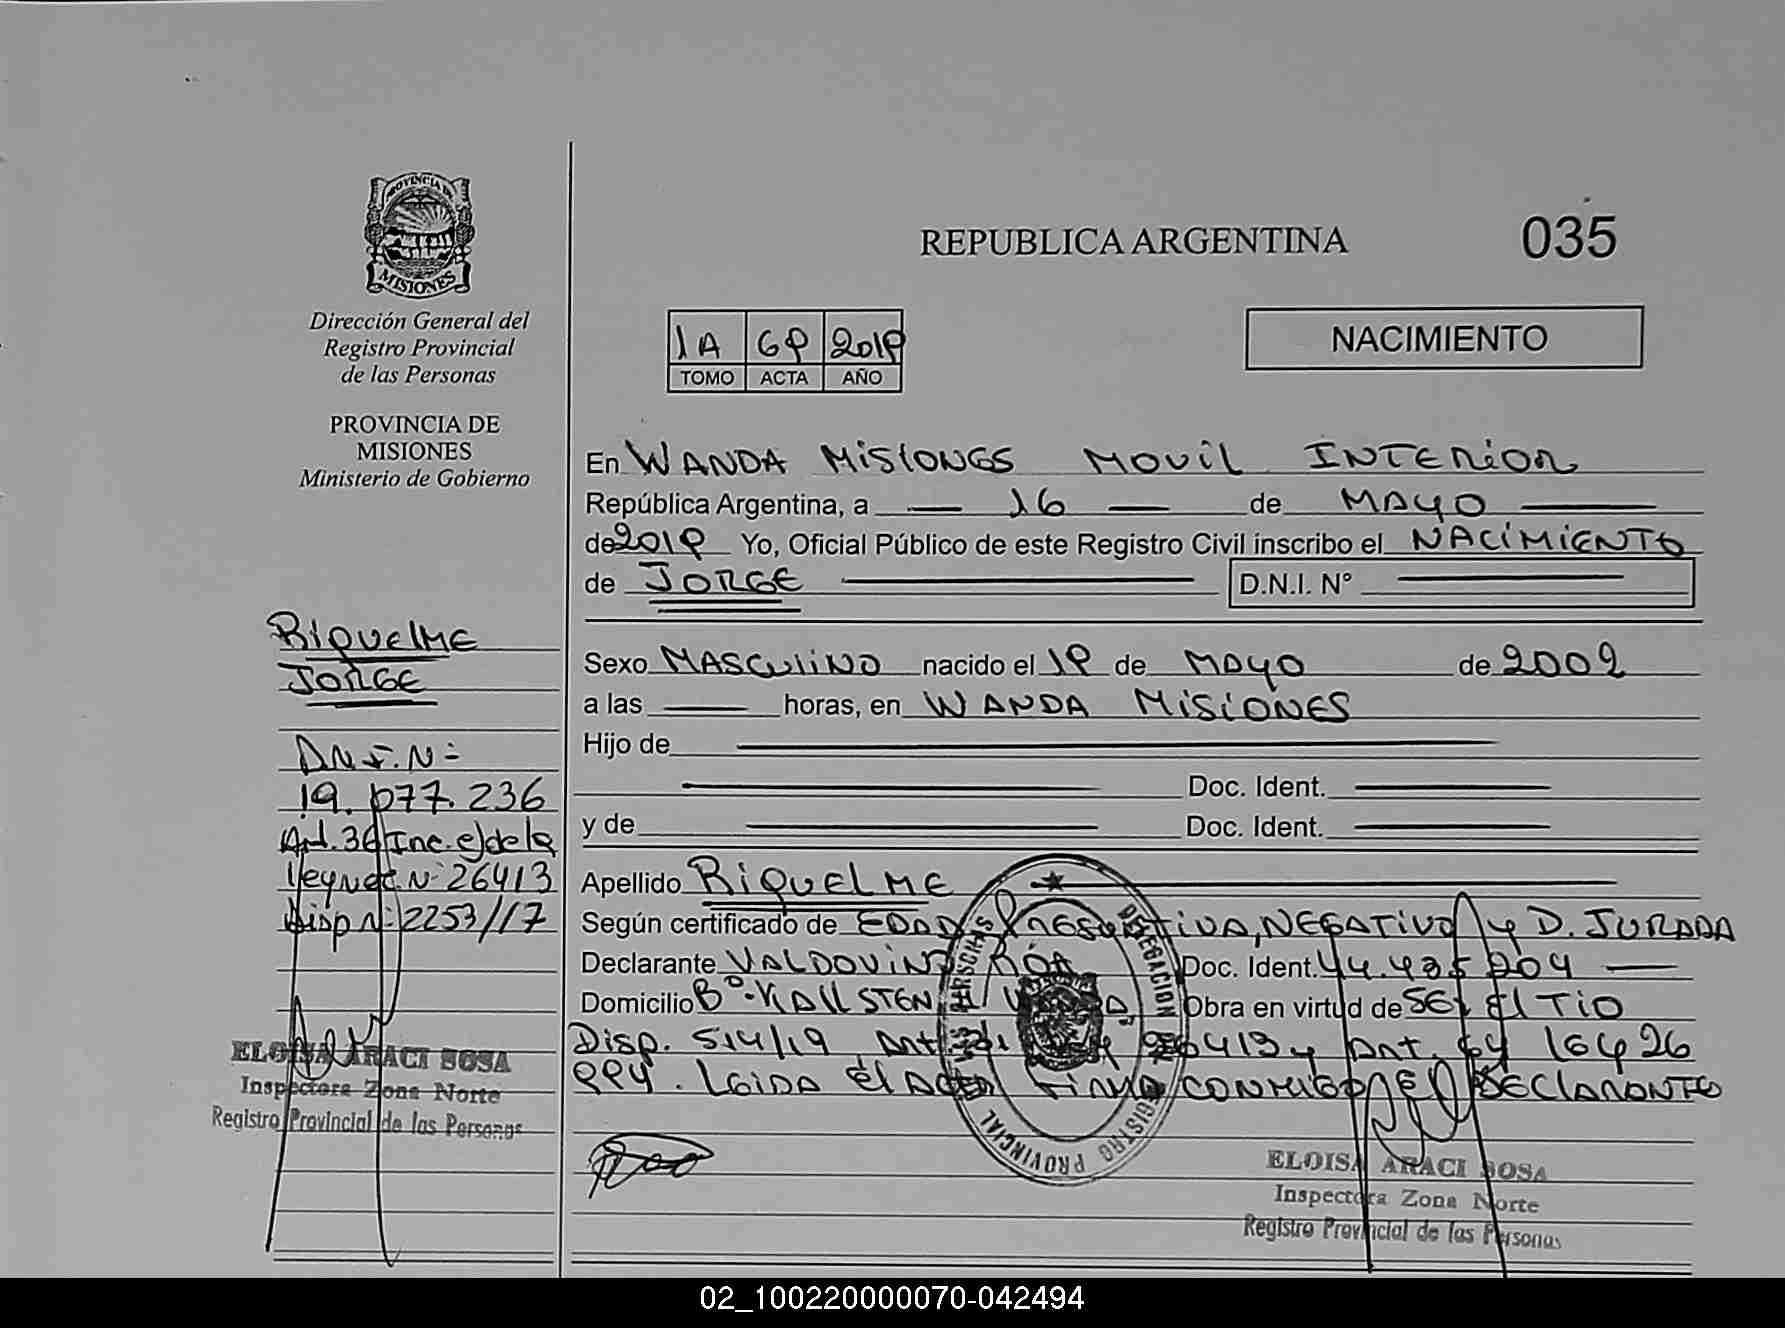 PROVINCIA DE
MISIONES
Dirección General del
Registro Provincial
de las Personas
PROVINCIA DE
MISIONES
Ministerio de Gobierno
REPUBLICA ARGENTINA
035
1A 69 2019
TOMO ACTA AÑO
NACIMIENTO
En WANDA MISIONES MOVIL INTERIOR
República Argentina, a 16 de MAYO
de 2019 Yo, Oficial Público de este Registro Civil inscribo el NACIMIENTO
de JORGE D.N.I. N°
Sexo MASCULINO nacido el 19 de MAYO de 2002
a las horas, en WANDA MISIONES
Hijo de
Doc. Ident.
y de Doc. Ident.
Apellido RIQUELME
Según certificado de EDAD PRESUNTIVA, NEGATIVO y D. JURADA
Declarante VALDOVINO ROA Doc. Ident. 44.435 204
Domicilio B°. KALLSTEN Obra en virtud de SER El TIO
Disp. 514/19 26413 y Art. 64 16426
PPY. LEIDA El ACTA FIRMA CONMIGO El DECLARANTE
RIQUELME
JORGE
DN.I. N=
19. 077. 236
Art. 36 Inc. e) de la
ley Nac. N- 26413
Disp N: 2253//17
ELOISA ARACI SOSA
Inspectora Zona Norte
Registro Provincial de las Personas
DELEGACION
REGISTRO PROVINCIAL
DE LAS PERSONAS
ELOISA ARACI SOSA
Inspectora Zona Norte
Registro Provincial de las Personas
02_100220000070-042494